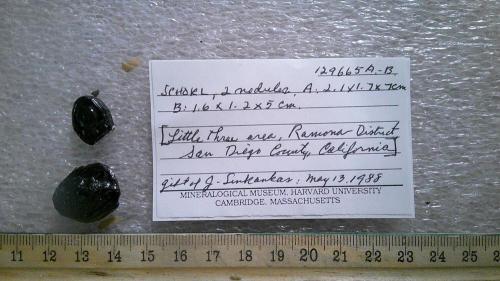 129665 A-B
SCHORL, 2 nodules, A: 2.1 x 1.7 x cm
B: 1.6 x 1.2 x 5 cm.
[Little Three area, Ramona District
San Diego County, California]
gift of J. Sinkankas; May 13, 1988
MINERALOGICAL MUSEUM, HARVARD UNIVERSITY
CAMBRIDGE, MASSACHUSETTS
11 12 13 14 15 16 17 18 19 20 21 22 23 24 25